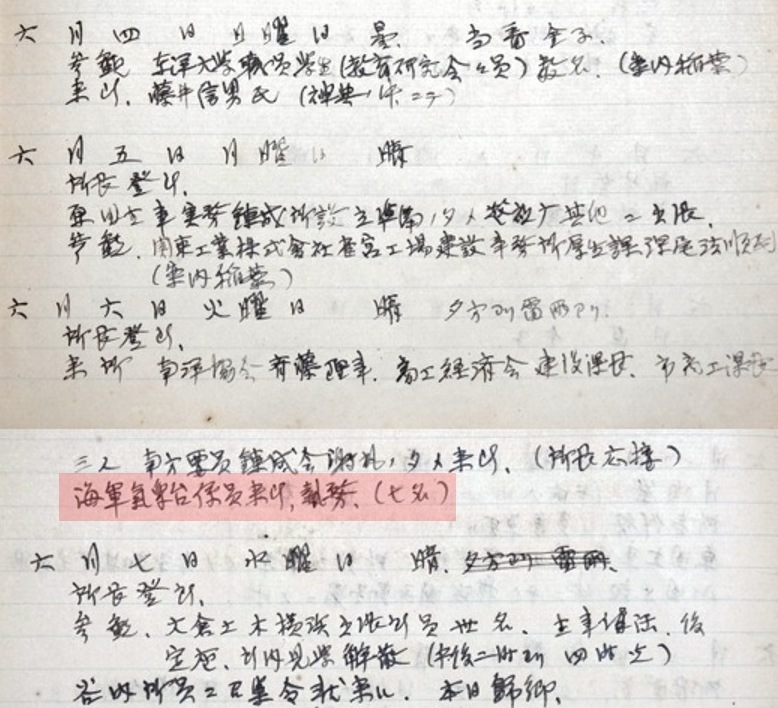 六月四日日曜日 曇、 当番金子、
参観 東洋大学職員学生(教育研究会々員)数名、(案内稲葉)
来所、藤井信男氏(神典ノ件ニテ)
六月五日月曜日 晴
所長登所、
原田主事実務錬成所設立準備ノタメ
参観、関東工業株式会社 工場建設事務所厚生課
(案内稲葉)
六月六日火曜日 晴 夕方ヨリ雷雨アリ
所長登所、
来所 南洋協会斉藤理事、商工経済会建設課長、市商工課長
三人 南方要員錬成会謝礼ノタメ来所、(所長応接)
海軍気象台係員来所、執務、(七名)
六月七日水曜日 晴、夕方ヨリ雷雨、
所長登所、
参観、大倉土木横浜出張所員 名、主事講話、後
所内見学解散(午後二時ヨリ四時迄)
谷内所員ニ召集令状来ル、本日帰郷、